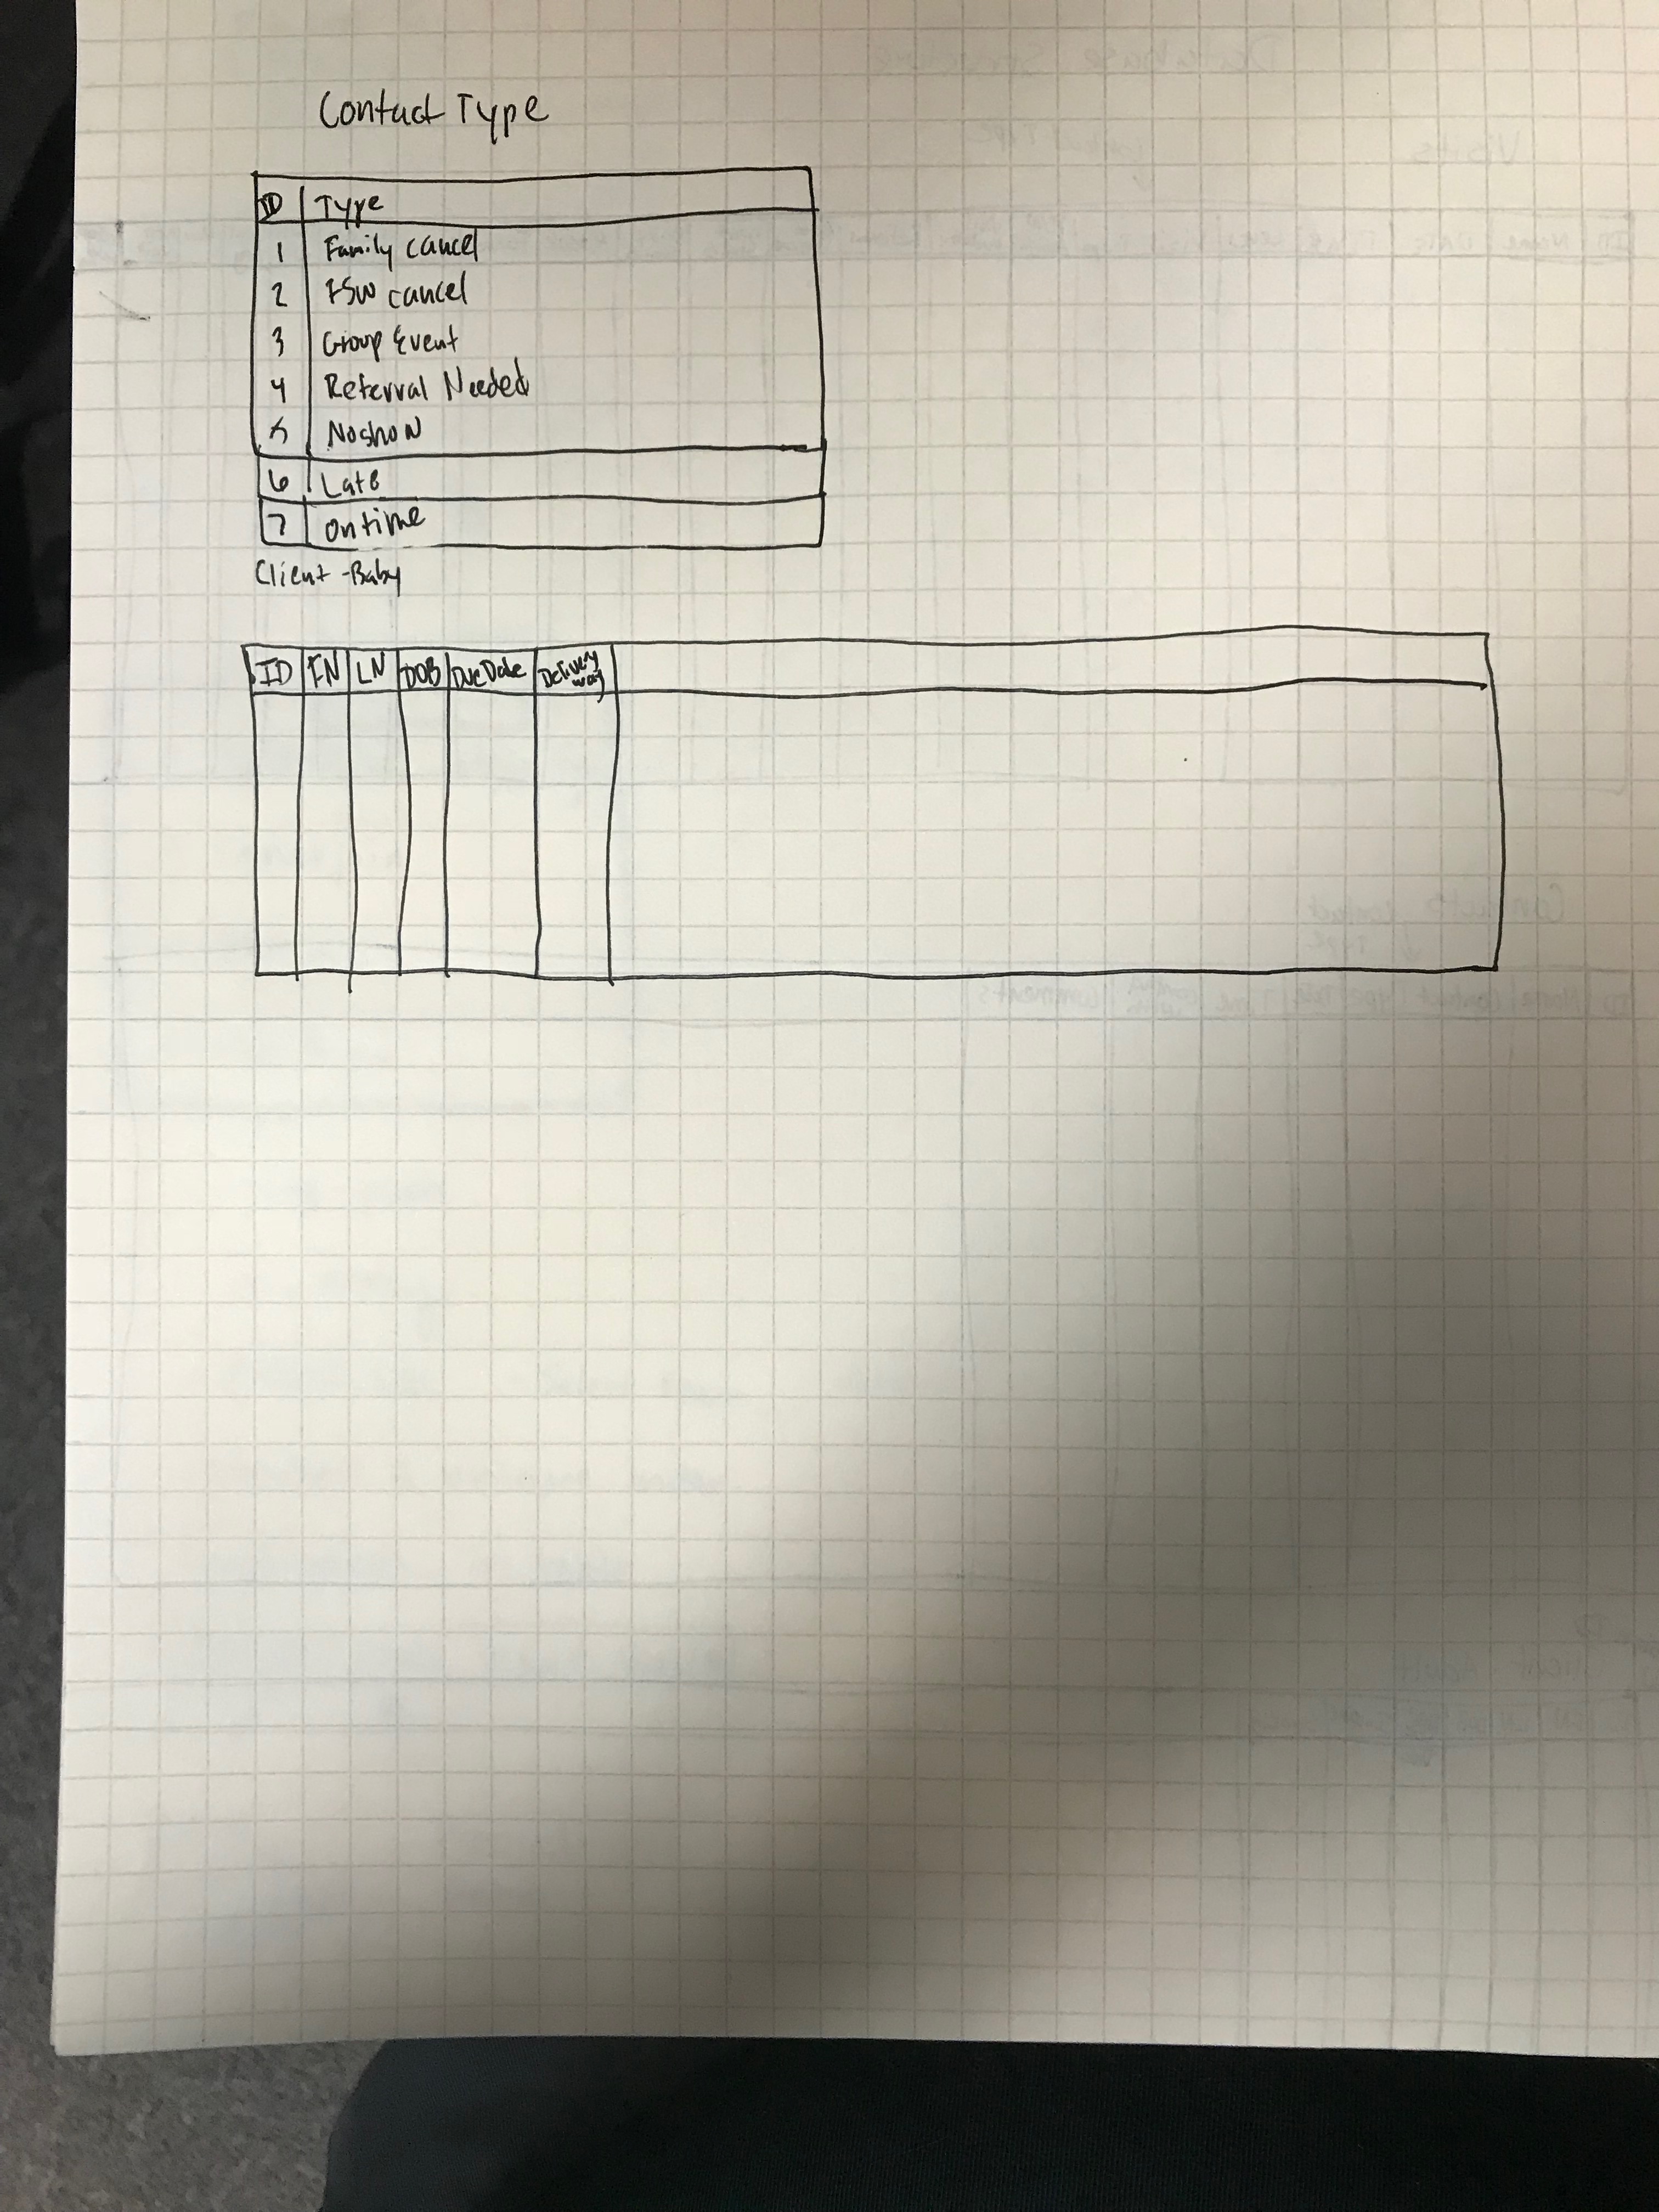 Contact Type
ID Type
1 Family cancel
2 FSW cancel
3 Group Event
4 Referral Needed
5 Noshow
6 Late
7 on time
Client-Baby
ID FN LN DOB Due Date Delivery way